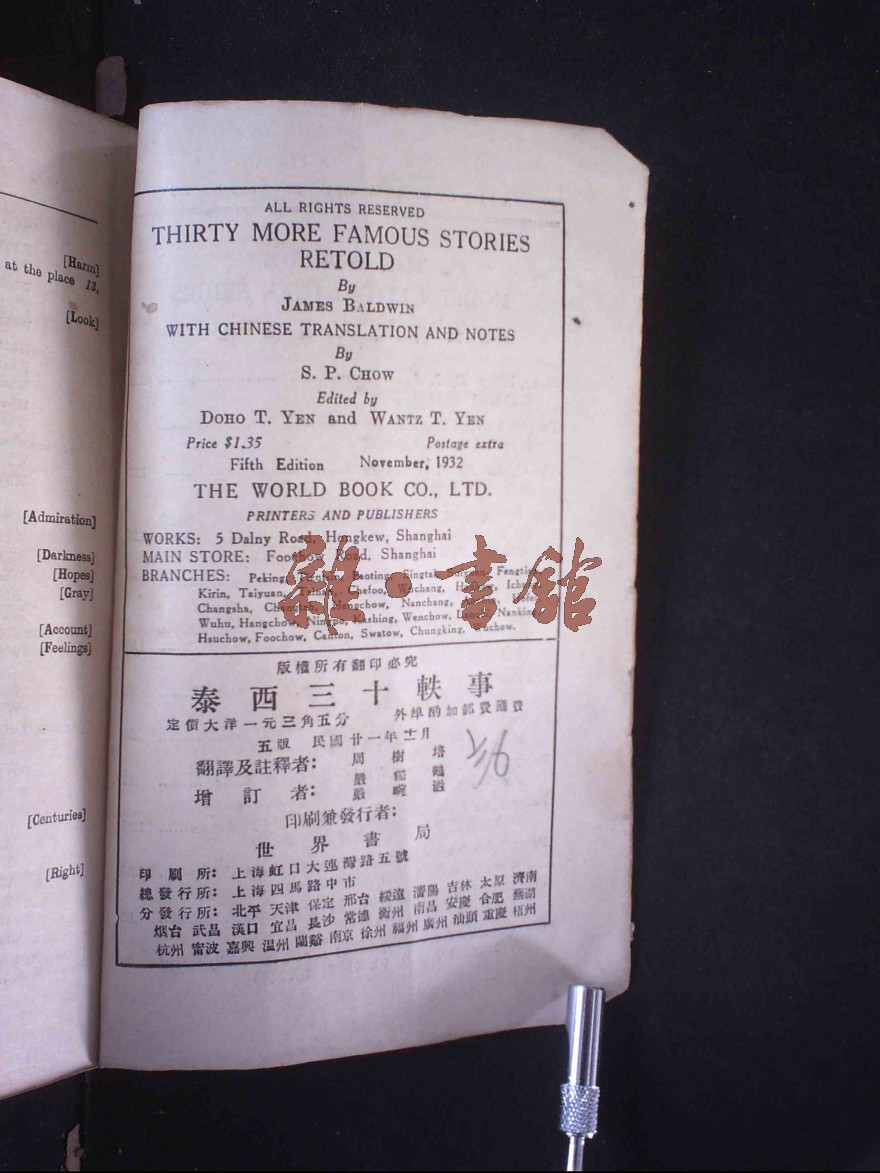 [Harm]
at the place 13.
[Look]
[Admiration]
[Darkness]
[Hopes]
[Gray]
[Account]
[Feelings]
[Centuries]
[Right]
ALL RIGHTS RESERVED
THIRTY MORE FAMOUS STORIES
RETOLD
By
JAMES BALDWIN
WITH CHINESE TRANSLATION AND NOTES
By
S. P. CHOW
Edited by
DOHO T. YEN and WANTZ T. YEN
Price $1.35 Postage extra
Fifth Edition November, 1932
THE WORLD BOOK CO., LTD.
PRINTERS AND PUBLISHERS
WORKS: 5 Dalny Road, Hongkew, Shanghai
MAIN STORE: Foochow Road, Shanghai
BRANCHES: Peking, Tientsin, Paoting, Fengtien,
Kirin, Taiyuan, Tsinan, Chefoo, Wuchang,
Changsha, Changteh, Hengchow, Nanchang,
Wuhu, Hangchow, Ningpo, Kashing, Wenchow, Nanking,
Hsuchow, Foochow, Canton, Swatow, Chungking, Wuchow.
版權所有翻印必究
泰西三十軼事
定價大洋一元三角五分 外埠酌加郵費匯費
五版 民國廿一年十一月
翻譯及註釋者: 周樹培
增訂者: 嚴獨鶴
嚴畹滋
印刷兼發行者:
世界書局
印刷所: 上海虹口大連灣路五號
總發行所: 上海四馬路中市
分發行所: 北平 天津 保定 邢台 綏遠 瀋陽 吉林 太原 濟南
烟台 武昌 漢口 宜昌 長沙 常德 衡州 南昌 安慶 合肥 蕪湖
杭州 甯波 嘉興 温州 蘭谿 南京 徐州 福州 廣州 汕頭 重慶 梧州
雜·書館